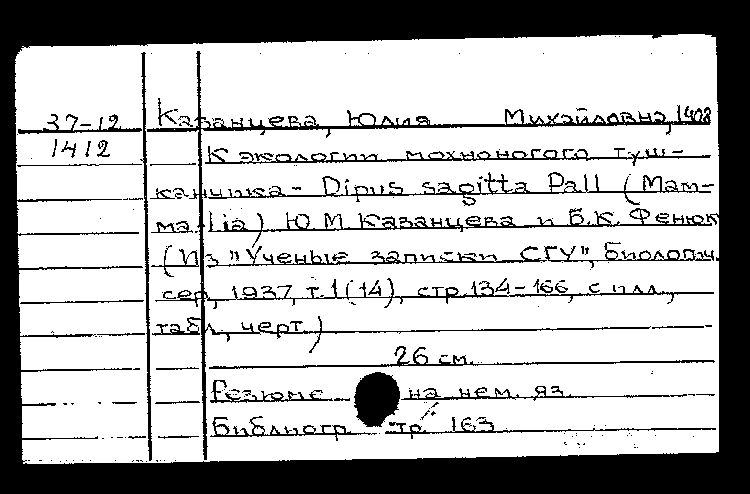 37-12 Казанцева, Юлия Михайловна, 1908
1412 К экологии мохноногого туш-
канчика - Dipus sagitta Pall (Mam-
malia) Ю М Казанцева и Б.К. Фенюк
(Из "Ученые записки СГУ", биологич.
сер, 1937, т. 1(14), стр. 134-166, с илл.,
табл., черт.)
26 см.
Резюме на нем. яз.
Библиогр. стр. 163